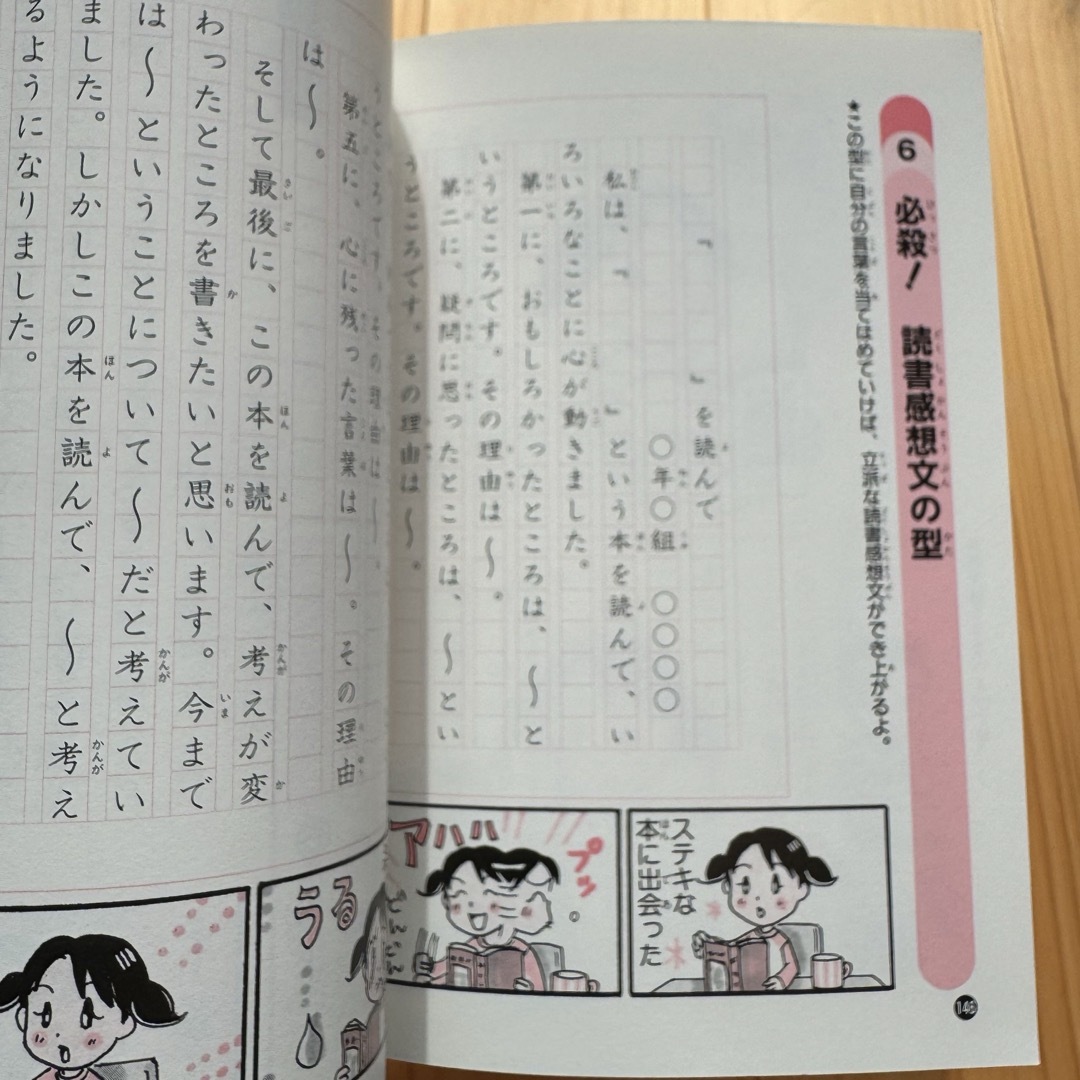 6 必殺！ 読書感想文の型
★この型に自分の言葉を当てはめていけば、立派な読書感想文ができ上がるよ。
『　　　』を読んで
〇年〇組　〇〇〇〇
私は、『　　　』という本を読んで、い
ろいろなことに心が動きました。
第一に、おもしろかったところは、〜と
いうところです。その理由は〜。
第二に、疑問に思ったところは、〜とい
うところです。その理由は〜。
第五に、心に残った言葉は〜。その理由
は〜。
そして最後に、この本を読んで、考えが変
わったところを書きたいと思います。今まで
は〜ということについて〜だと考えてい
ました。しかしこの本を読んで、〜と考え
るようになりました。
ステキな
本に出会った
プッ。
アハハ
うる